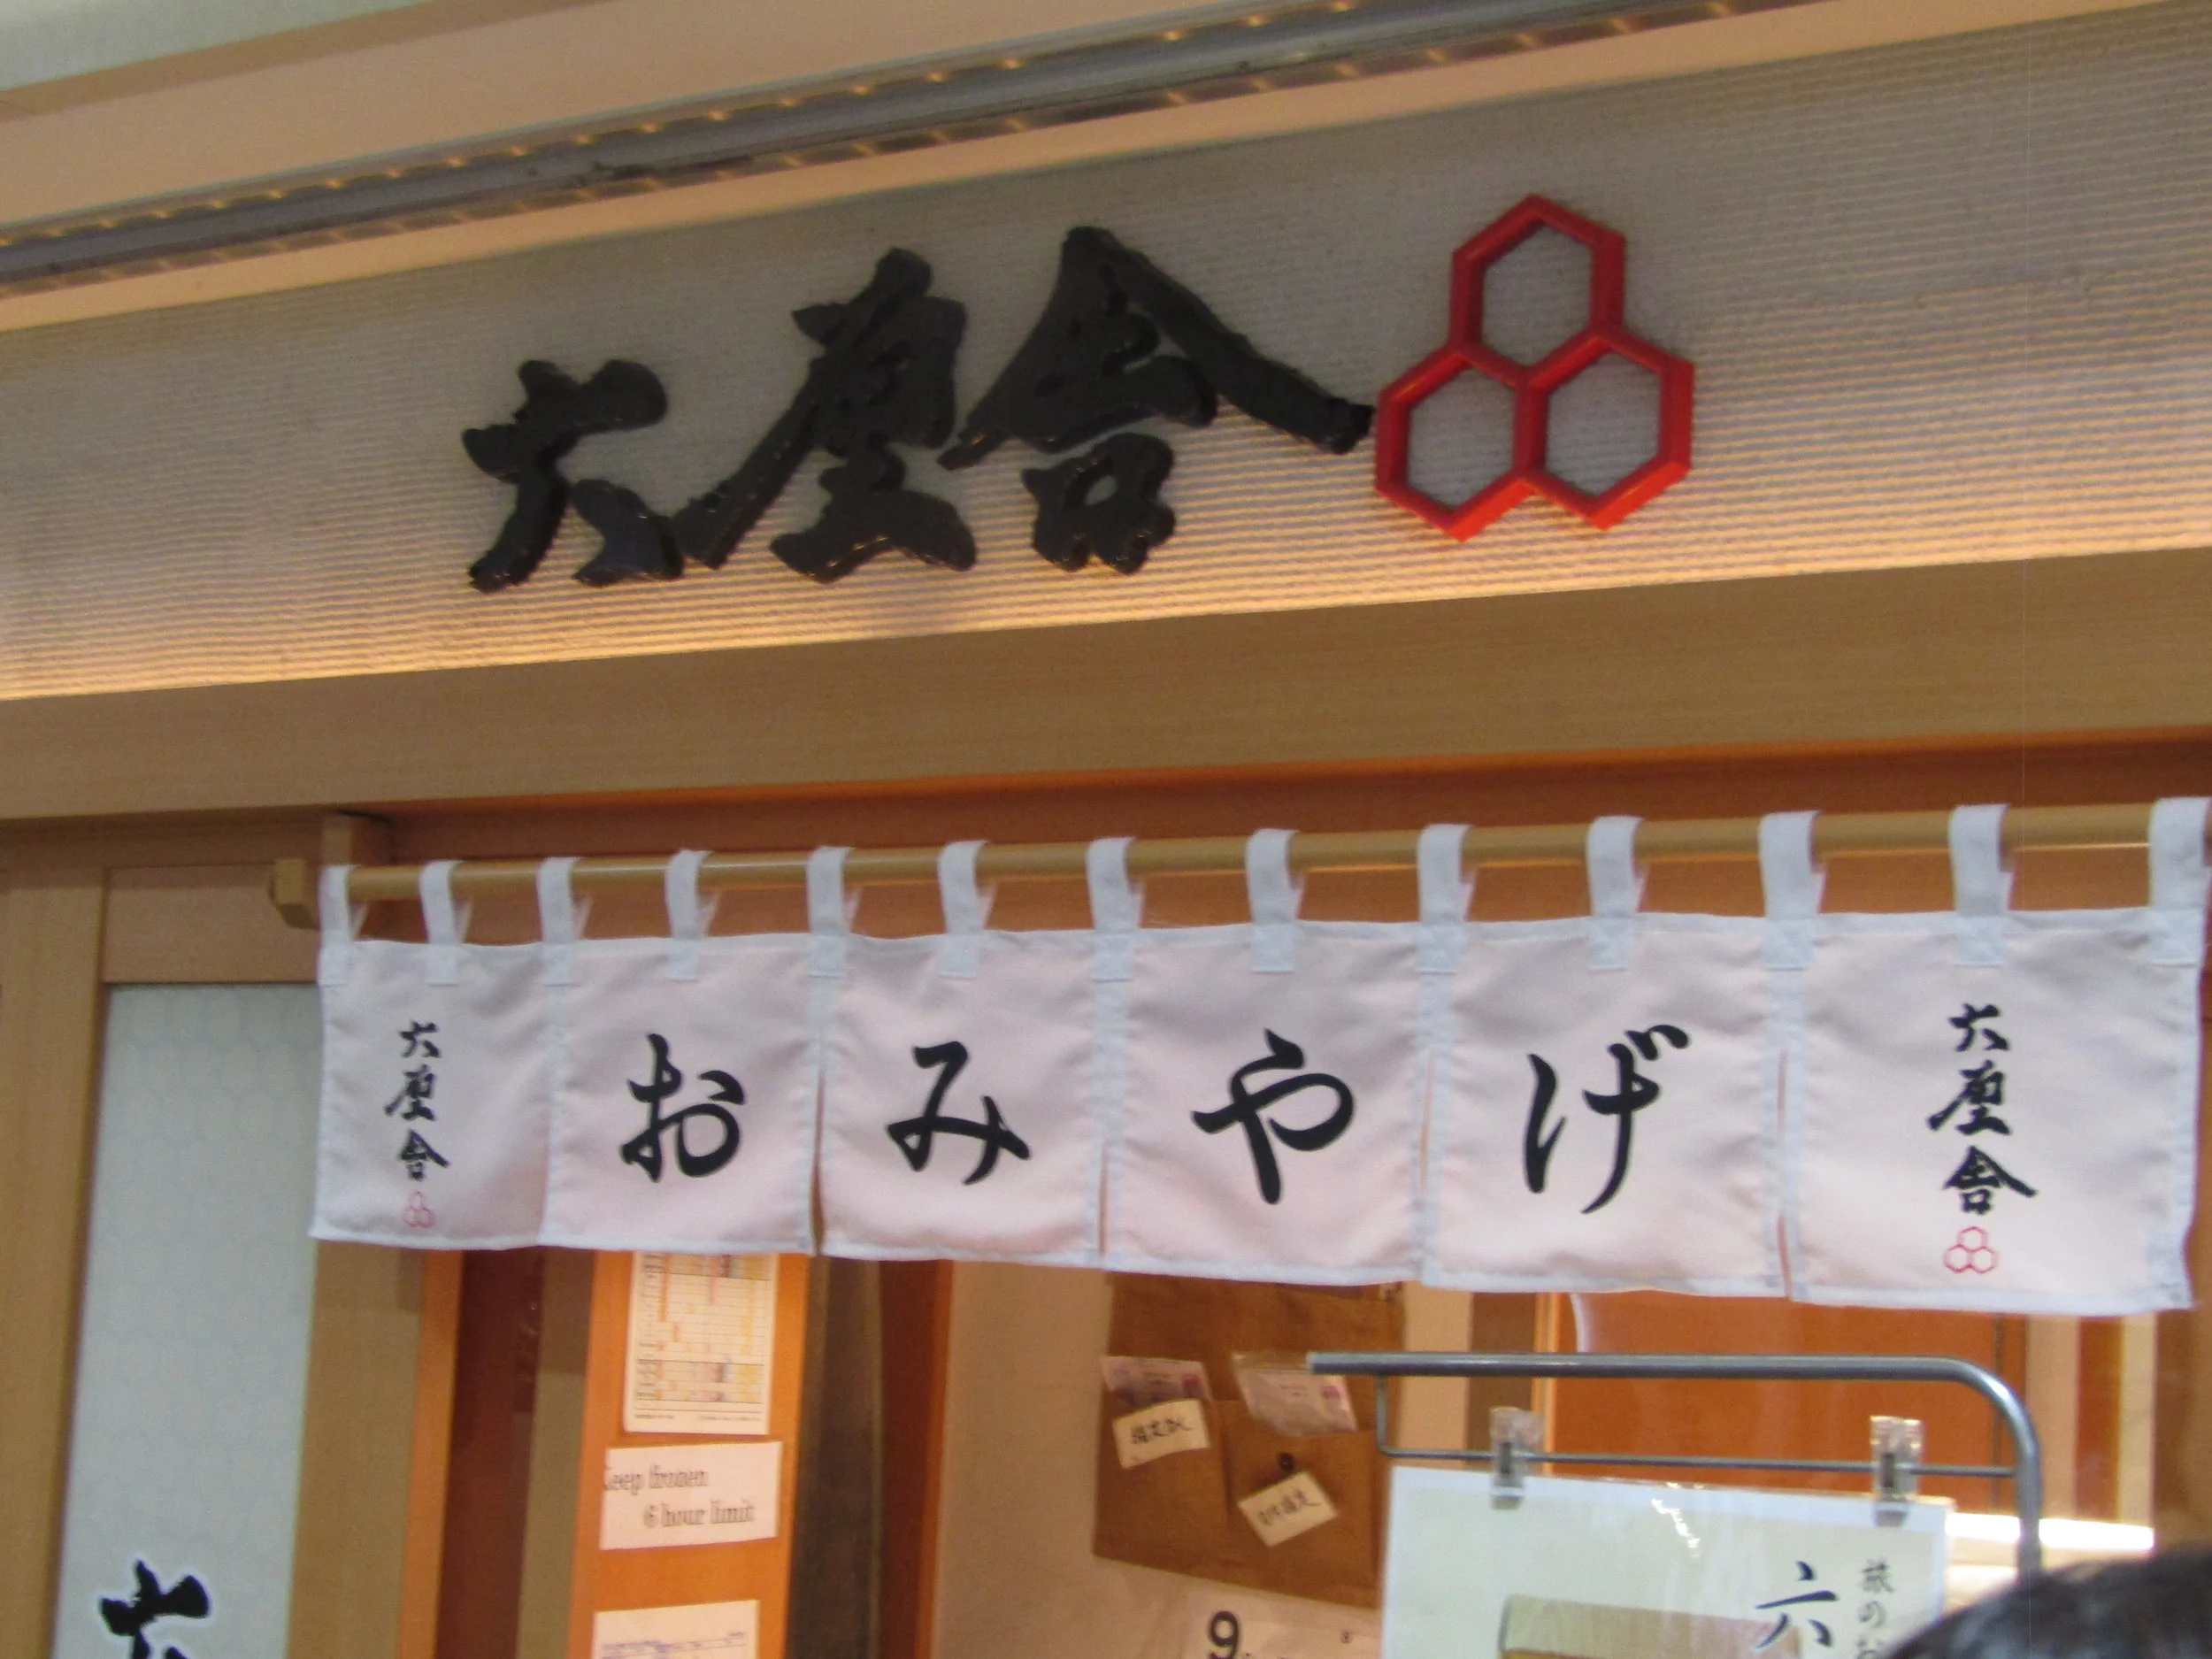 六厘舎
六厘舎
おみやげ
六厘舎
Keep frozen
6 hour limit
9
六
旅のお
六